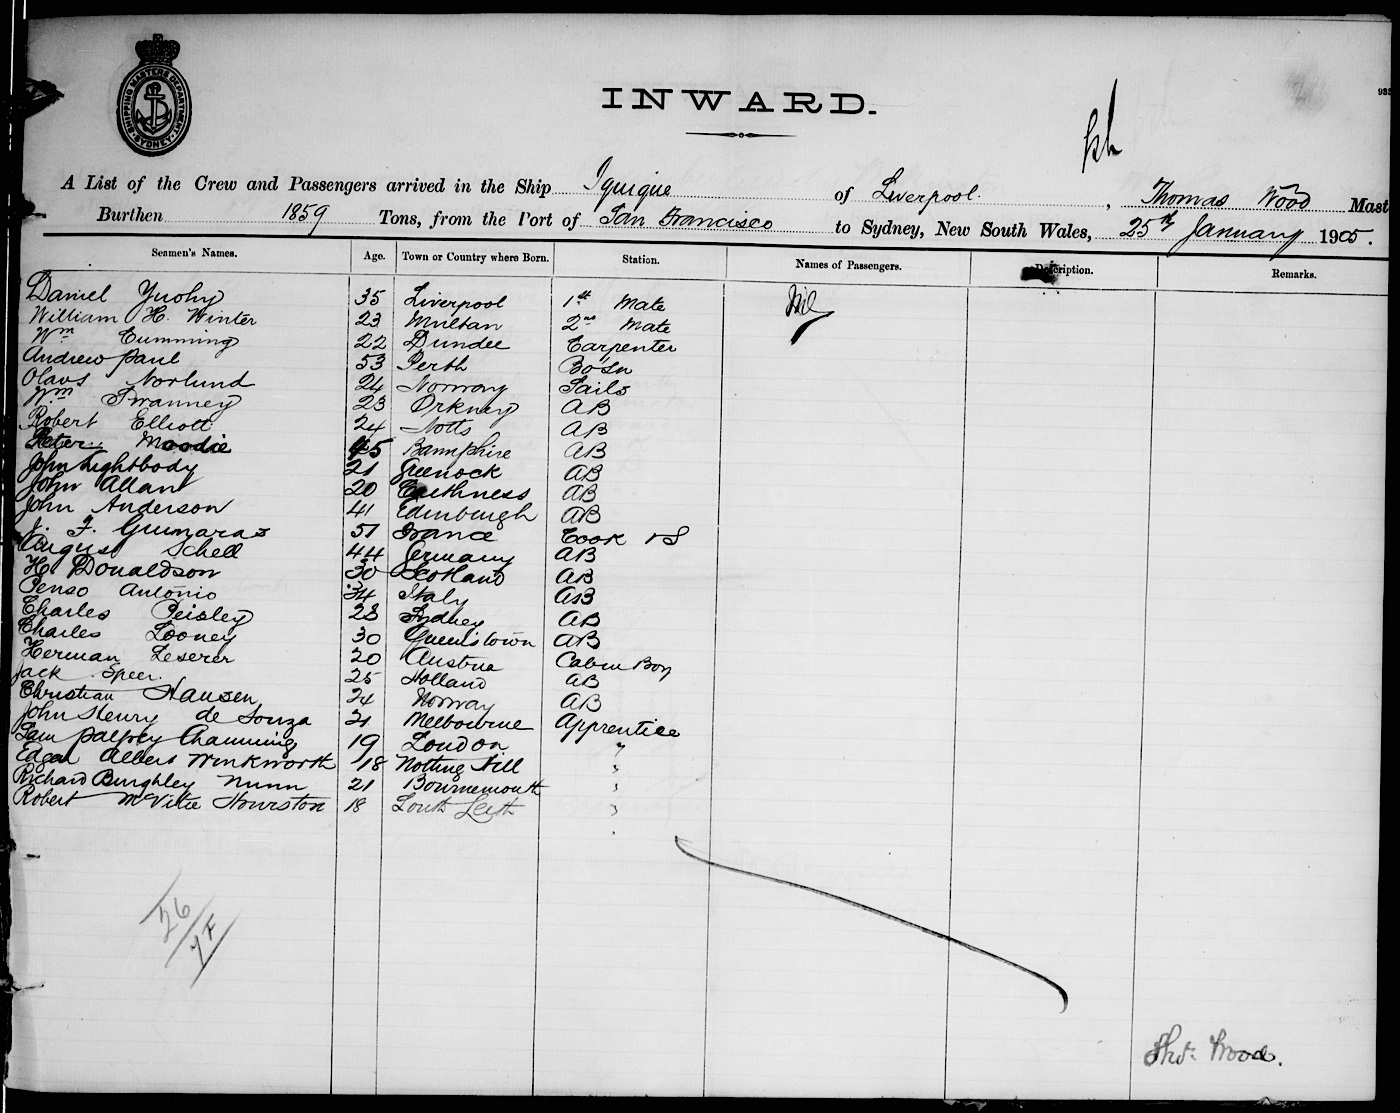 SHIPPING MASTERS DEPARTMENT
SYDNEY
INWARD.
A List of the Crew and Passengers arrived in the Ship Iquique of Liverpool, Thomas Wood Mast
Burthen 1859 Tons, from the Port of San Francisco to Sydney, New South Wales, 25th January 1905.
Seamen's Names. Age. Town or Country where Born. Station. Names of Passengers. Description. Remarks.
Daniel 35 Liverpool 1st Mate Nil
William H. Winter 23 Multan 2nd Mate
Wm Cumming 22 Dundee Carpenter
Andrew Paul 53 Perth Bo'sn
Olavs Norlund 24 Norway Sails
Wm Swanney 23 Orkney AB
Robert Elliott 24 Notts AB
Peter Moodie 45 Bannfshire AB
John Lightbody 21 Greenock AB
John Allan 20 Caithness AB
John Anderson 41 Edinburgh AB
J. F. Guimaraz 51 France Cook & S
August Schell 44 Germany AB
H Donaldson 30 Scotland AB
Penso Antonio 34 Italy AB
Charles Peisley 28 Sydney AB
Charles Looney 30 Queenstown AB
Herman Leserer 20 Austria Cabin Boy
Jack Speer. 25 Holland AB
Christian Hansen 24 Norway AB
John Henry de Souza 21 Melbourne Apprentice
Sam Palfrey Channing 19 London "
Edgar Albert Winkworth 18 Notting Hill "
Richard Burghley Nunn 21 Bournemouth "
Robert McVitie Hourston 18 South Leith "
26
Thos. Wood.